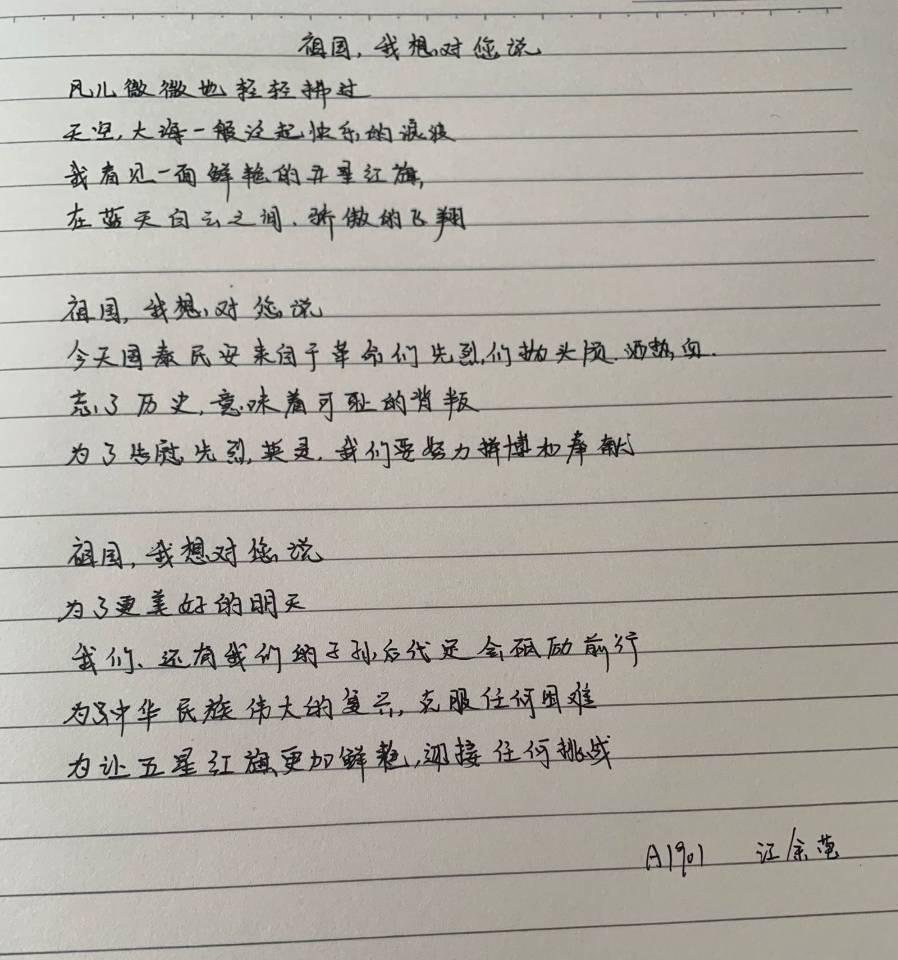 祖国，我想对您说
风儿微微地轻轻拂过
天空，大海一般泛起快乐的浪波
我看见一面鲜艳的五星红旗，
在蓝天白云之间．骄傲的飞翔
祖国，我想对您说
今天国泰民安来自于革命们先烈们抛头颅．洒热血．
忘了历史，意味着可耻的背叛
为了告慰先烈英灵．我们要努力拼搏和奉献
祖国，我想对您说
为了更美好的明天
我们、还有我们的子孙后代定会砥励前行
为中华民族伟大的复兴，克服任何困难
为让五星红旗更加鲜艳，迎接任何挑战
A1901 江余